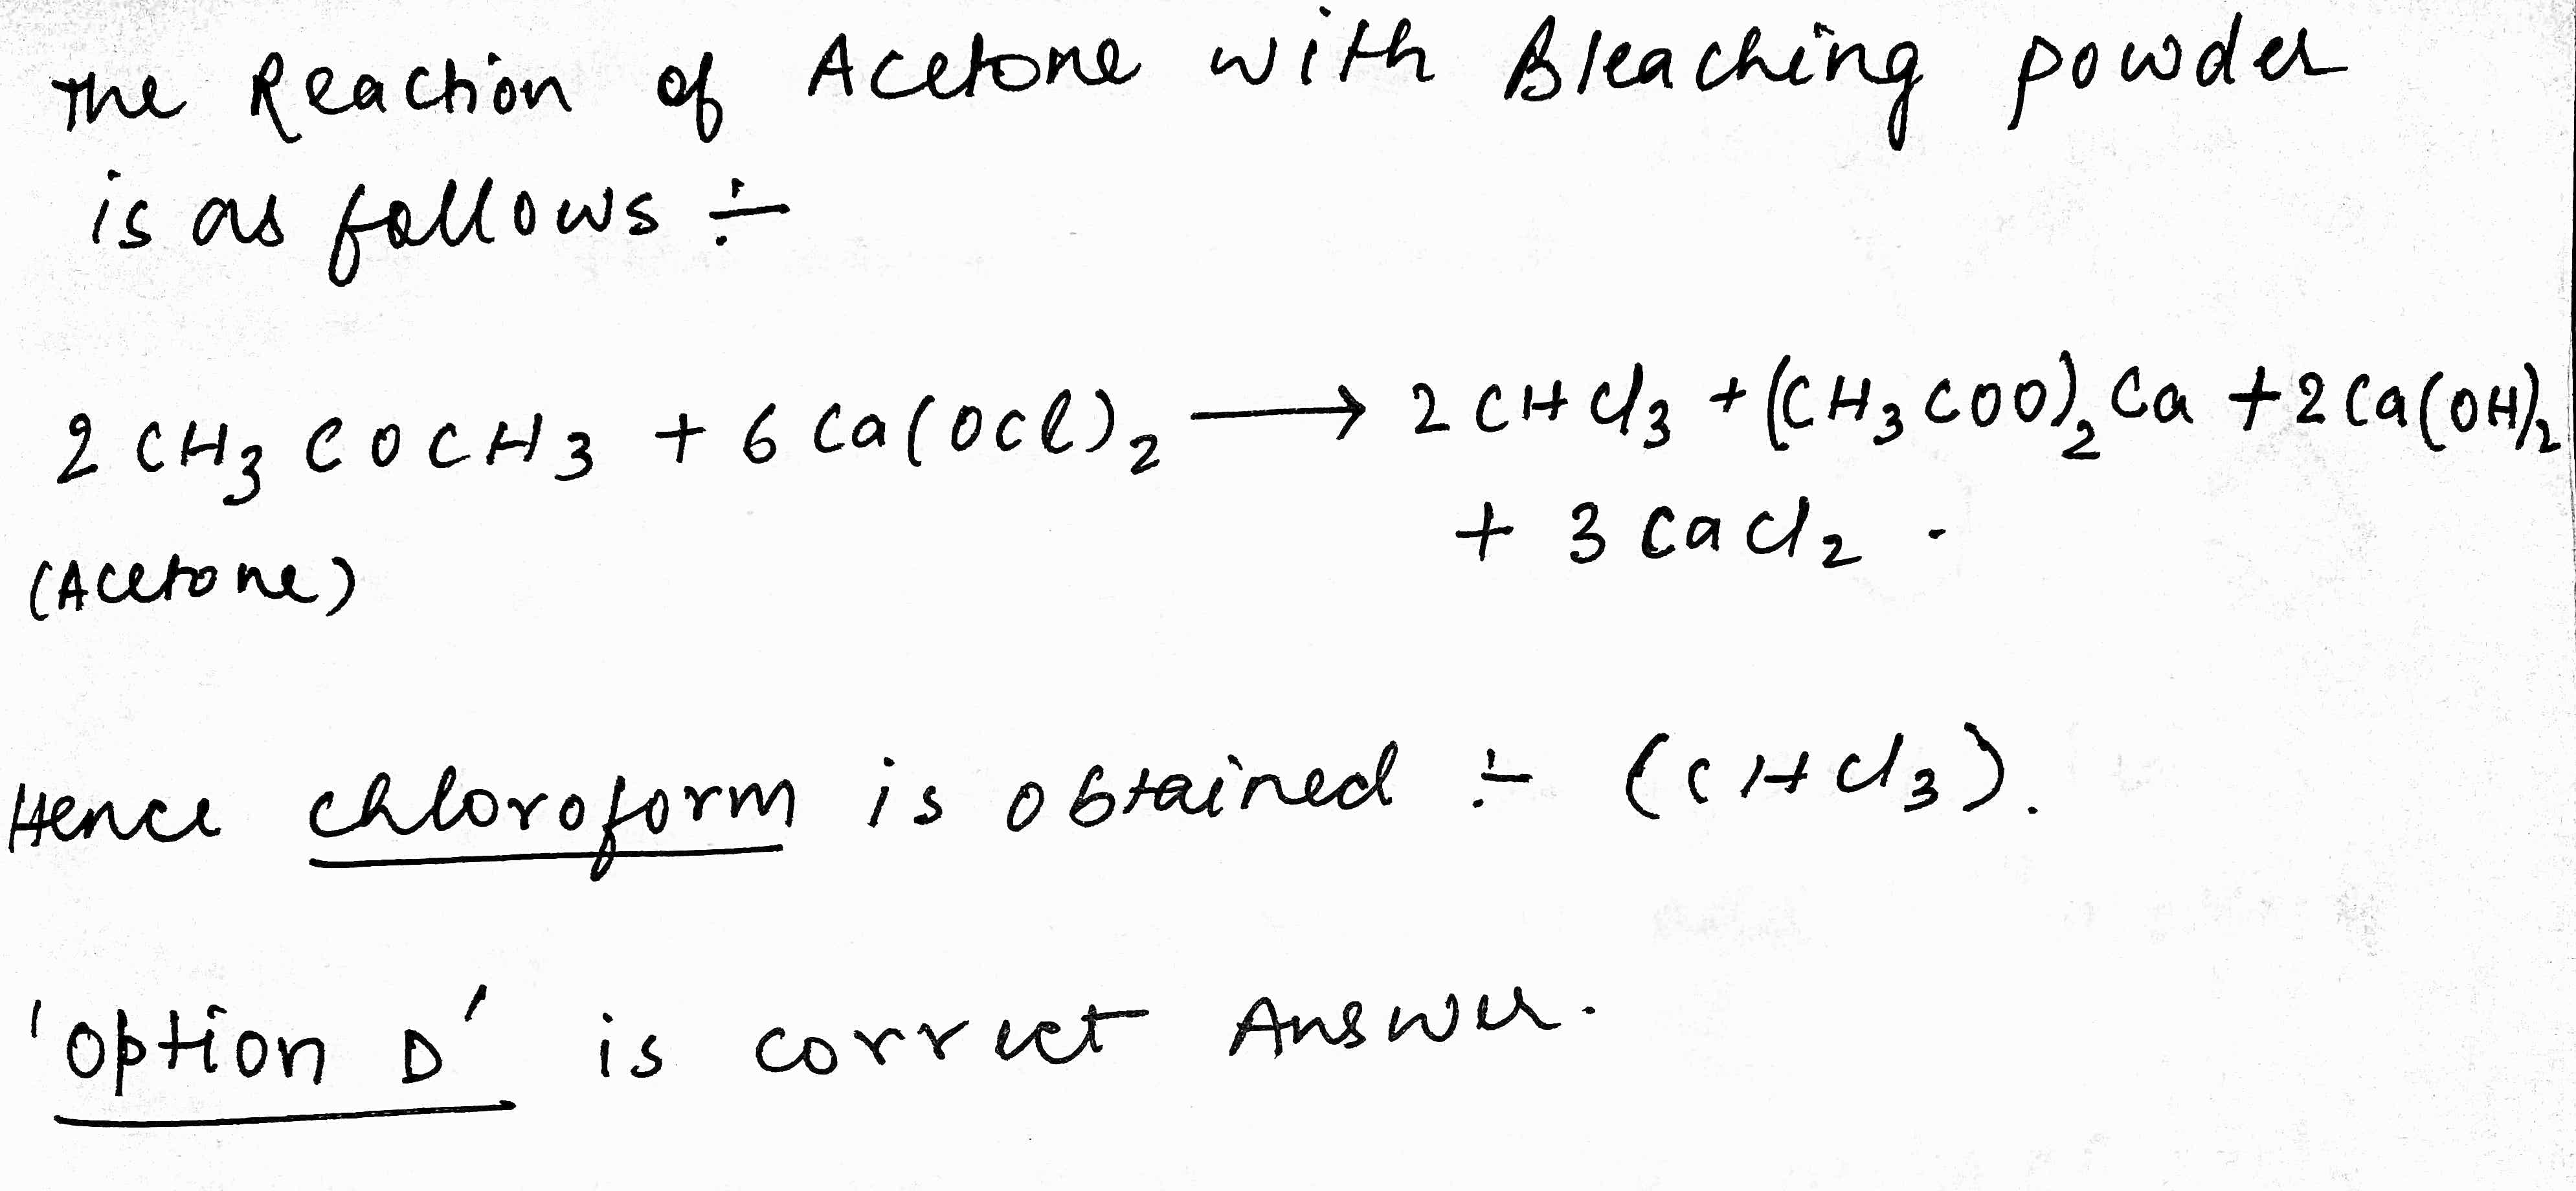 The Reaction of Acetone with Bleaching powder
is as follows ÷
2 CH₃ COCH₃ + 6 Ca(OCl)₂ ⟶ 2 CHCl₃ + (CH₃COO)₂ Ca + 2 Ca(OH)₂
+ 3 CaCl₂ .
(Acetone)
Hence chloroform is obtained ÷ (CHCl₃).
'Option D' is correct Answer.